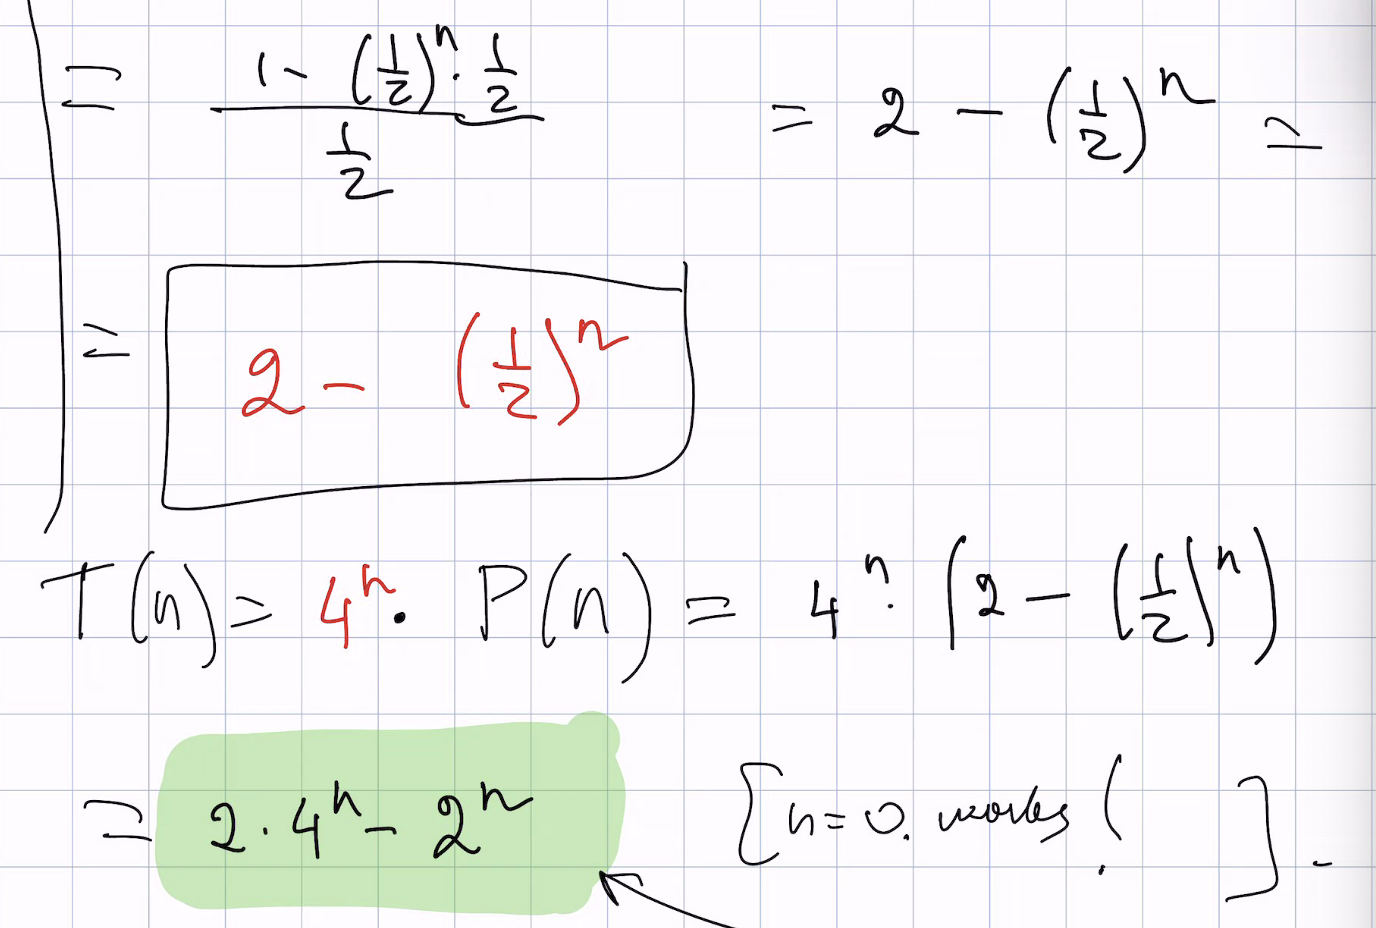 = (1 - (1/2)^n · 1/2) / (1/2) = 2 - (1/2)^n =
= 2 - (1/2)^n
T(n) = 4^n · P(n) = 4^n · (2 - (1/2)^n)
= 2 · 4^n - 2^n [n=0. works! ].